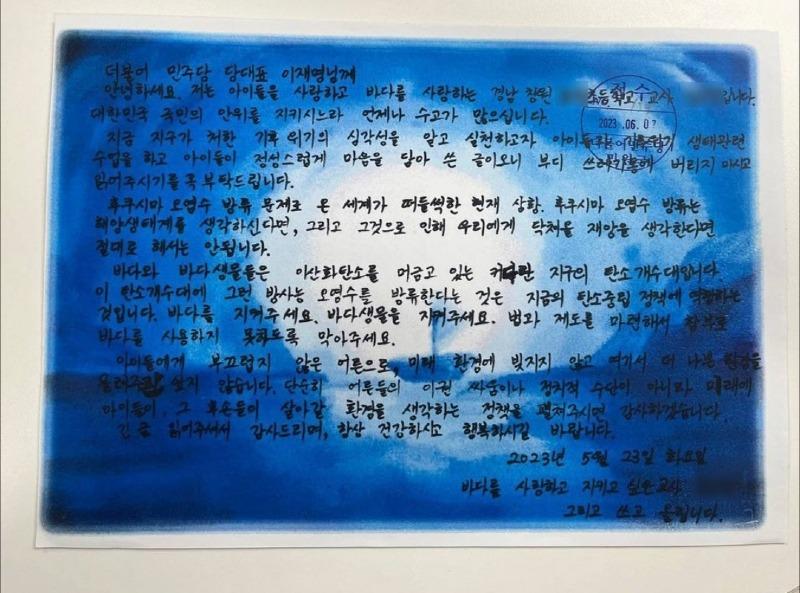 더불어 민주당 당대표 이재명님께
안녕하세요. 저는 아이들을 사랑하고 바다를 사랑하는 경남 창원 초등학교 교사 입니다.
대한민국 국민의 안위를 지키시느라 언제나 수고가 많으십니다.
지금 지구가 처한 기후 위기의 심각성을 알고 실천하고자 아이들과 생태관련
수업을 하고 아이들이 정성스럽게 마음을 담아 쓴 글이오니 부디 쓰레기통에 버리지 마시고
읽어주시기를 꼭 부탁드립니다.
후쿠시마 오염수 방류 문제로 온 세계가 떠들썩한 현재 상황. 후쿠시마 오염수 방류는
해양생태계를 생각하신다면, 그리고 그것으로 인해 우리에게 닥쳐올 재앙을 생각한다면
절대로 해서는 안됩니다.
바다와 바다생물들은 이산화탄소를 머금고 있는 커다란 지구의 탄소 개수대입니다
이 탄소개수대에 그런 방사능 오염수를 방류한다는 것은 지금의 탄소중립 정책에 역행하는
것입니다. 바다를 지켜주세요. 바다생물을 지켜주세요. 법과 제도를 마련해서 함부로
바다를 사용하지 못하도록 막아주세요.
아이들에게 부끄럽지 않은 어른으로, 미래 환경에 빚지지 않고 여기서 더 나쁜 환경을
물려주고 싶지 않습니다. 단순히 어른들의 이권 싸움이나 정치적 수단이 아니라 미래에
아이들이, 그 후손들이 살아갈 환경을 생각하는 정책을 펼쳐주시면 감사하겠습니다.
긴글 읽어주셔서 감사드리며, 항상 건강하시고 행복하시길 바랍니다.
2023년 5월 23일 화요일
바다를 사랑하고 지키고 싶은 교사
그리고 쓰고 올립니다.
접수
2023.06.07